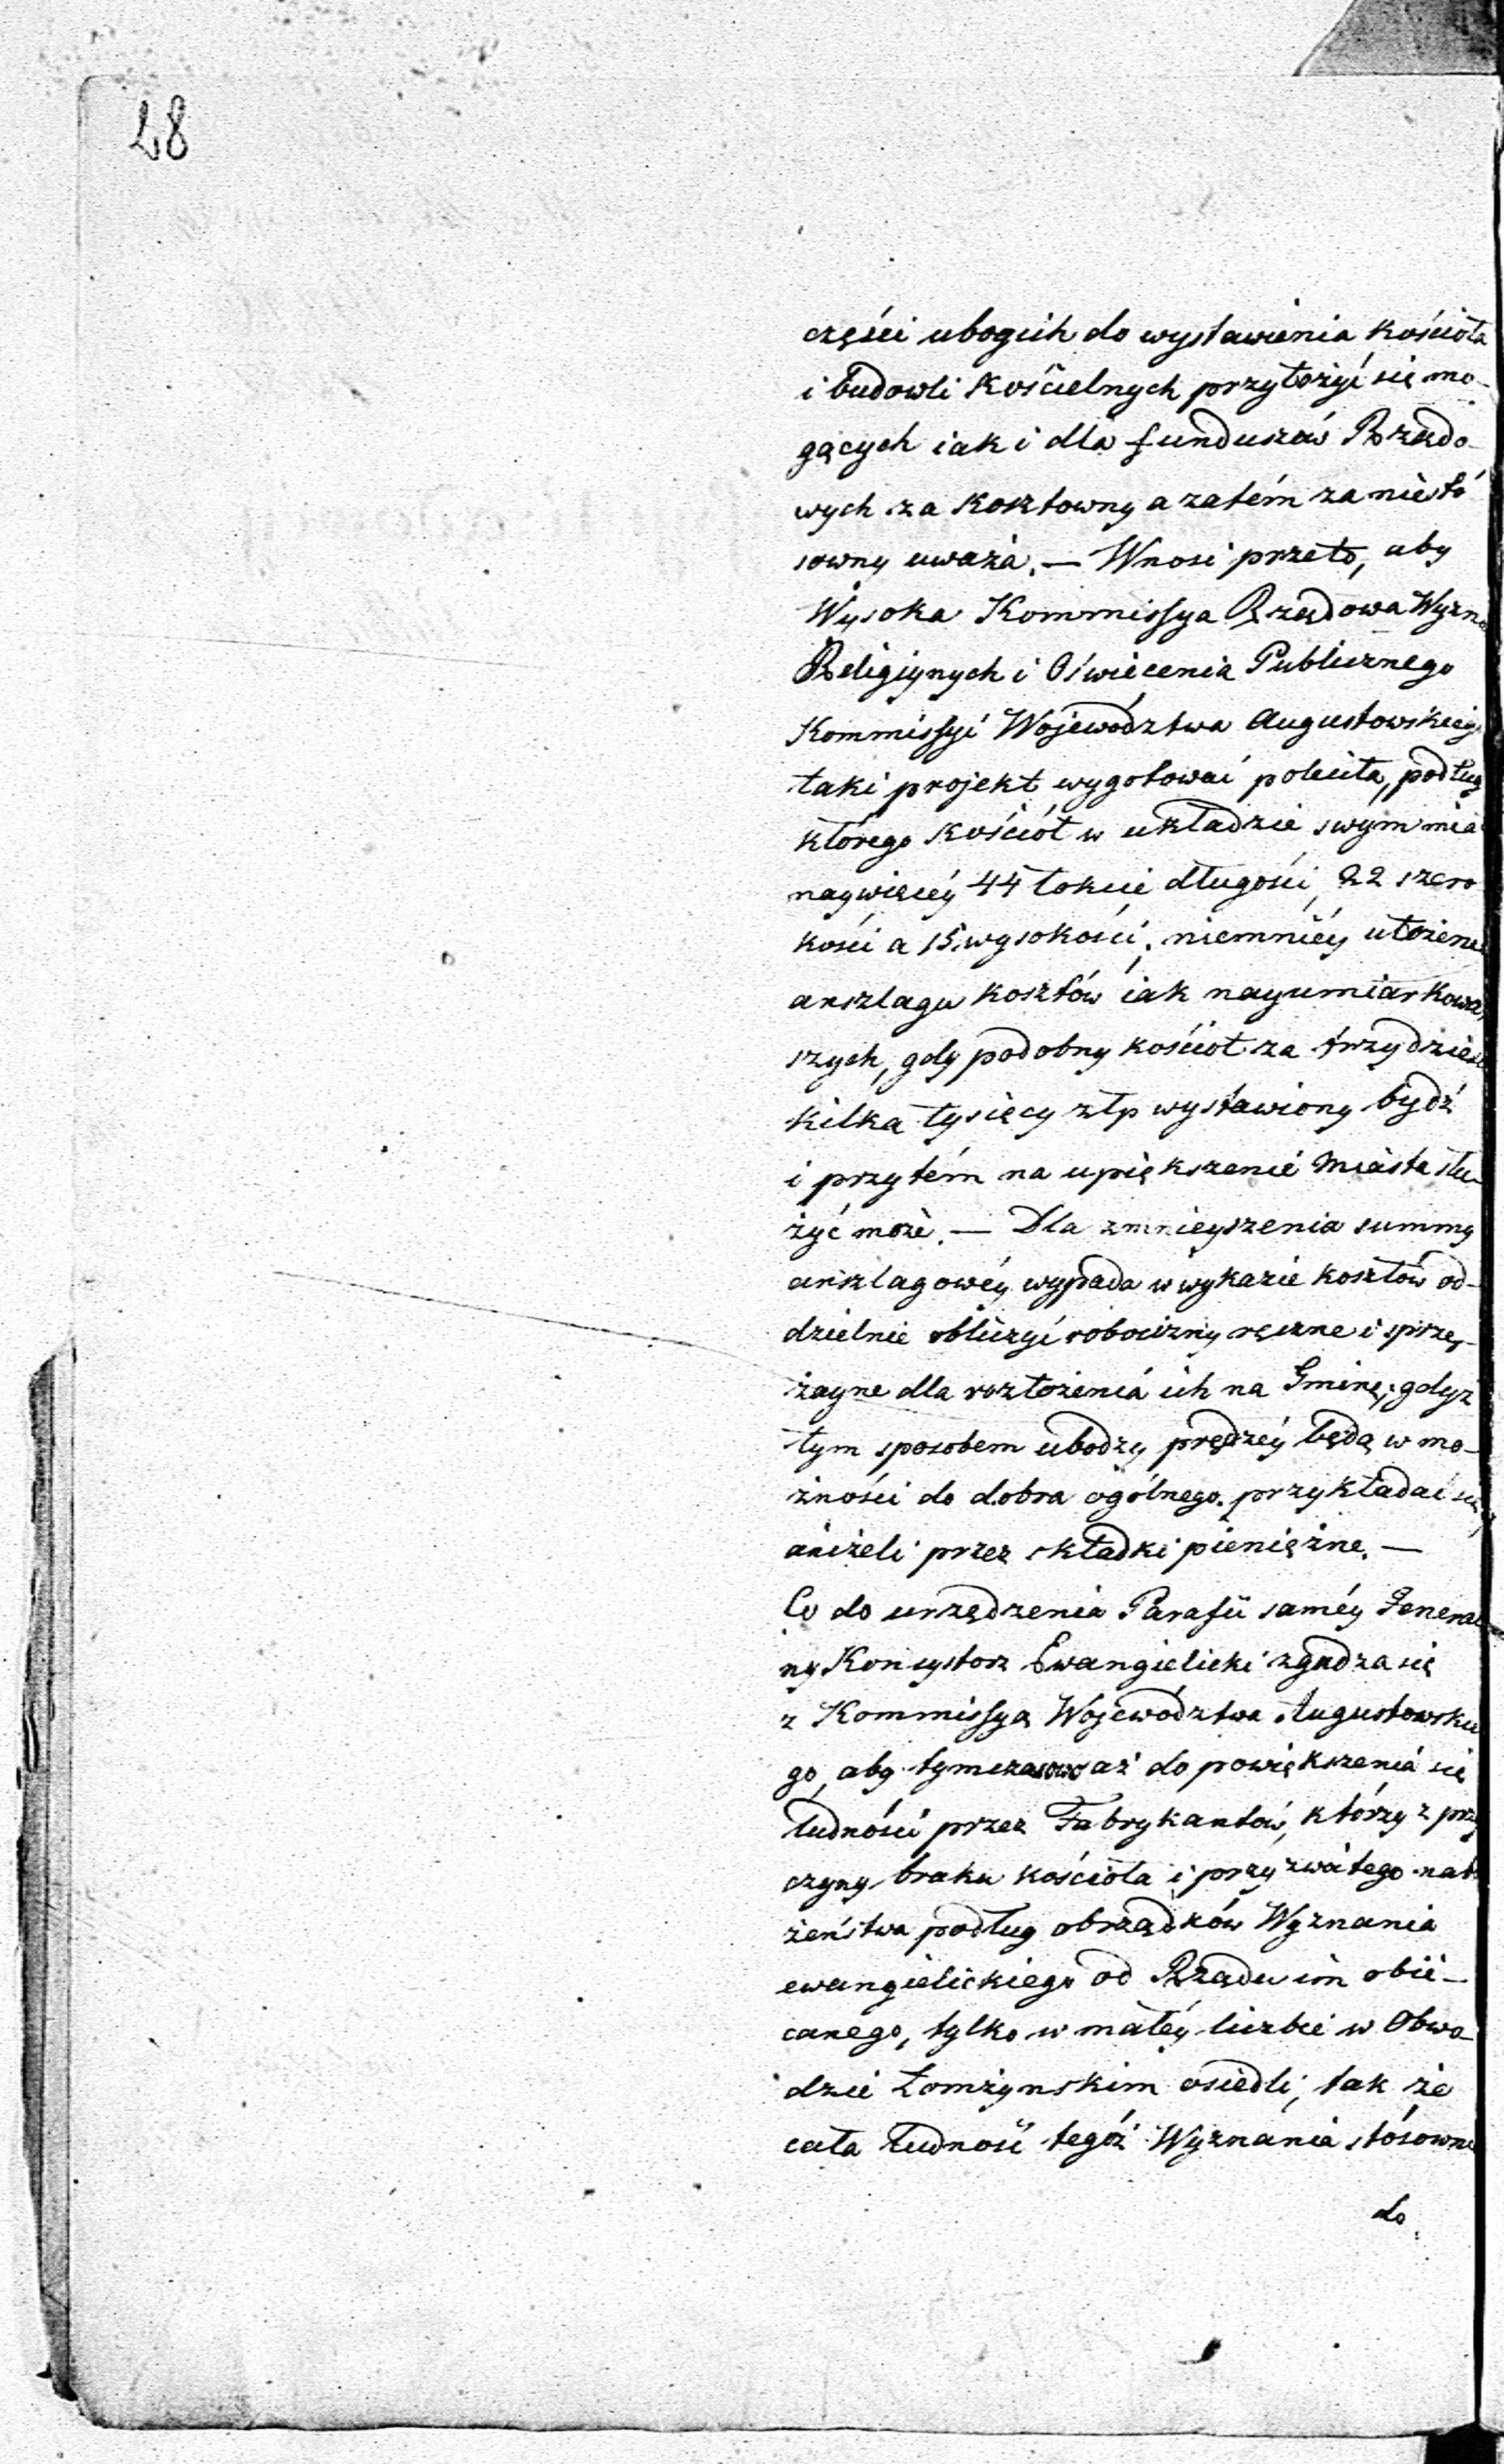 28
części ubogich do wystawienia kościoła
i budowli kościelnych przyłożyć się mo-
gących iak i dla funduszów Rządo-
wych za kosztowny a zatém za niestó
sowny uważa. — Wnosi przeto, aby
Wysoka Kommissya Rządowa Wyzna
Religiynych i Oświecenia Publicznego
Kommissyi Województwa Augustowskieg
taki projekt wygotować poleciła, podług
którego kościół w układzie swym miał
naywięcéy 44 łokcie długości, 22 szero
kości a 15 wysokości, niemniéy ułożenie
anszlagu kosztów iak nayumiarkowa
szych, gdy podobny kościoł za trzydzieści
kilka tysięcy złp wystawiony bydź
i przytém na upiększenie Miasta słu-
żyć może. — Dla zmnieyszenia summy
anszlagowéy wypada w wykazie kosztów od-
dzielnie obliczyć robocizny ręczne i sprzę-
żayne dla rozłożenia ich na Gminę; gdyż
tym sposobem ubodzy prędzéy będą w mo-
żności do dobra ogólnego przykładać się,
aniżeli przez składki pieniężne. —
Co do urządzenia Parafii saméy General-
ny Konsystorz Ewangielicki zgadza się
z Kommissyą Województwa Augustowskie
go, aby tymczasowo aż do powiększenia się
ludności przez Fabrykantów, którzy z przy
czyny braku kościoła i przyzwoitego nabo
żeństwa podług obrządków Wyznania
ewangielickiego od Rządu im obie-
canego, tylko w małéy liczbie w Obwo-
dzie Łomżynskim osiedli, tak że
cała ludność tegóż Wyznania stósownie
do